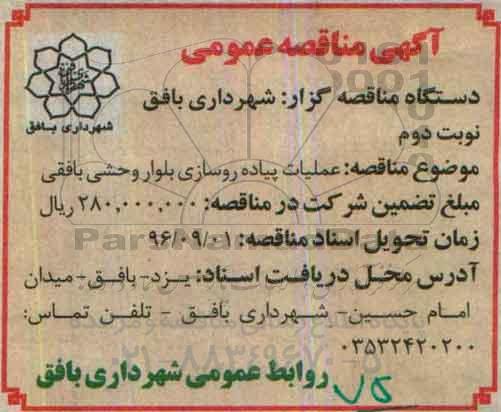 آگهی مناقصه عمومی
شهرداری بافق
دستگاه مناقصه گزار: شهرداری بافق
نوبت دوم
موضوع مناقصه: عملیات پیاده روسازی بلوار وحشی بافقی
مبلغ تضمین شرکت در مناقصه: ۲۸۰,۰۰۰,۰۰۰ ریال
زمان تحویل اسناد مناقصه: ۹۶/۰۹/۰۱
آدرس محل دریافت اسناد: یزد- بافق- میدان
امام حسین- شهرداری بافق - تلفن تماس:
۰۳۵۳۲۴۲۰۲۰۰
روابط عمومی شهرداری بافق
۷۵